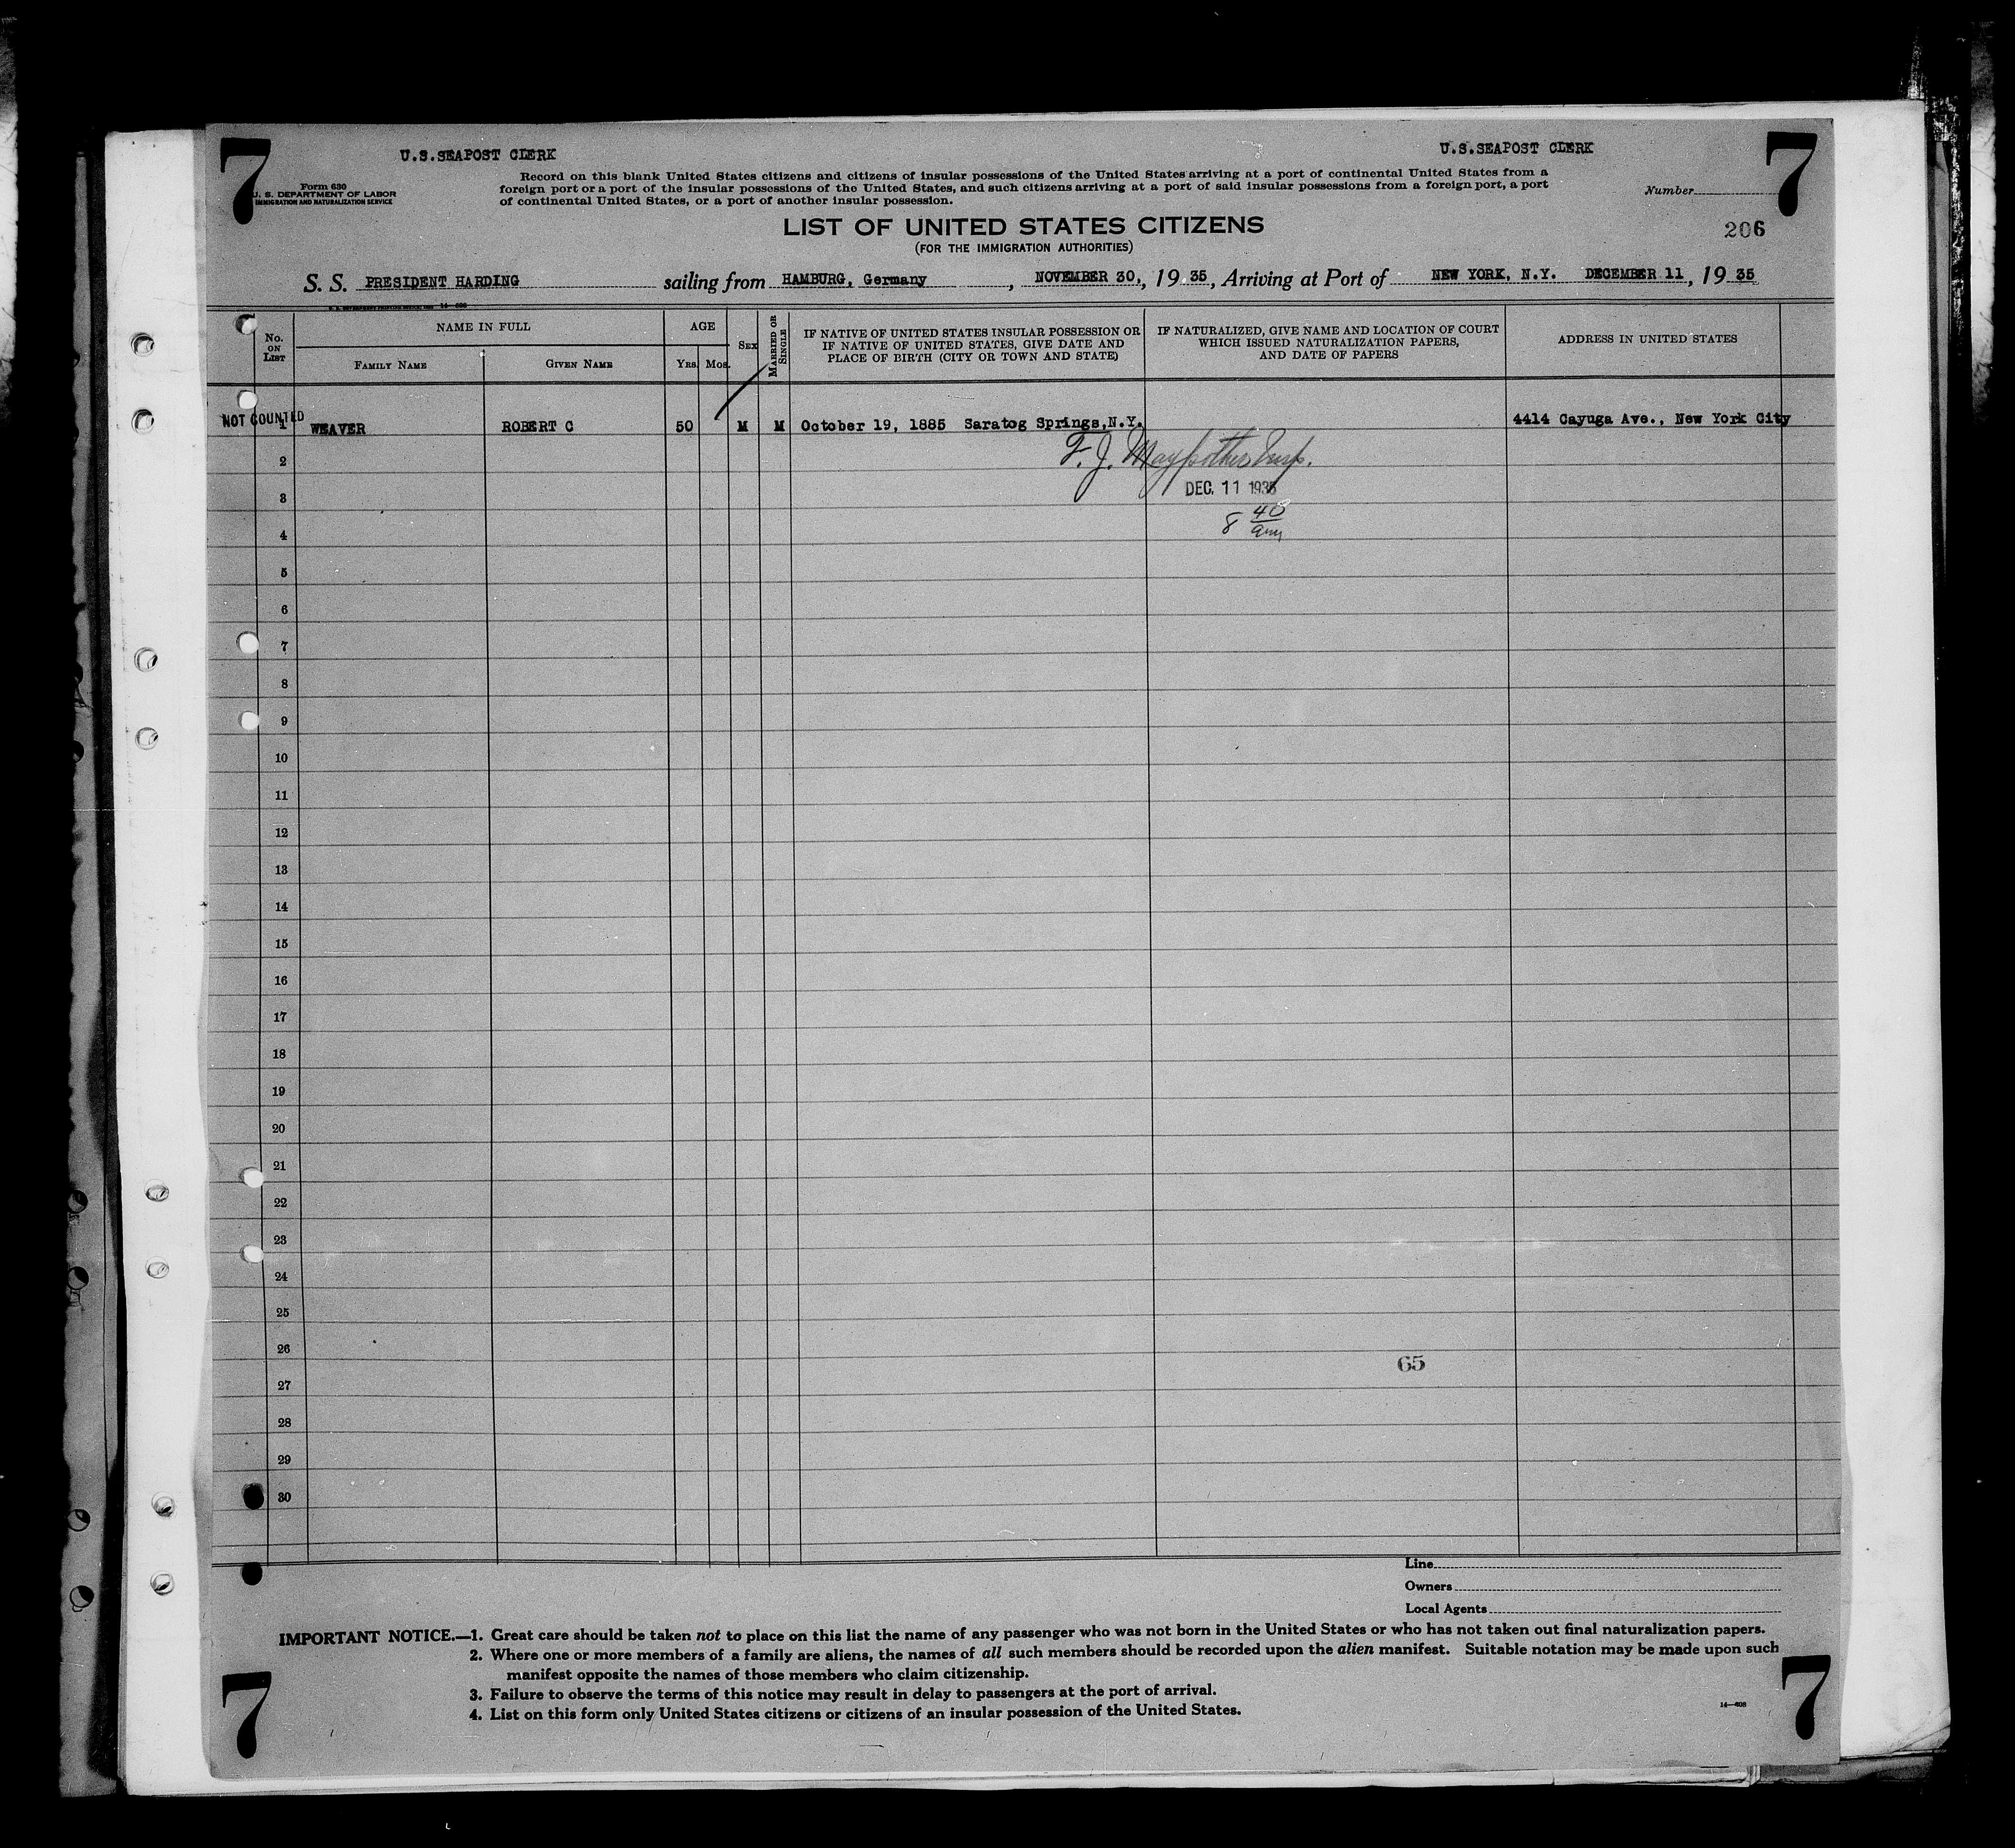 7 7
U.S.SEAPOST CLERK U.S.SEAPOST CLERK
Form 630
U. S. DEPARTMENT OF LABOR
IMMIGRATION AND NATURALIZATION SERVICE
Record on this blank United States citizens and citizens of insular possessions of the United States arriving at a port of continental United States from a
foreign port or a port of the insular possessions of the United States, and such citizens arriving at a port of said insular possessions from a foreign port, a port
of continental United States, or a port of another insular possession.
Number
LIST OF UNITED STATES CITIZENS
(FOR THE IMMIGRATION AUTHORITIES)
206
S. S. PRESIDENT HARDING sailing from HAMBURG, Germany, NOVEMBER 30, 1935, Arriving at Port of NEW YORK, N.Y. DECEMBER 11, 1935
No. ON LIST
NAME IN FULL
FAMILY NAME GIVEN NAME
AGE
YRS. MOS.
SEX
MARRIED OR SINGLE
IF NATIVE OF UNITED STATES INSULAR POSSESSION OR
IF NATIVE OF UNITED STATES, GIVE DATE AND
PLACE OF BIRTH (CITY OR TOWN AND STATE)
IF NATURALIZED, GIVE NAME AND LOCATION OF COURT
WHICH ISSUED NATURALIZATION PAPERS,
AND DATE OF PAPERS
ADDRESS IN UNITED STATES
NOT COUNTED
1 WEAVER ROBERT C 50 M M October 19, 1885 Saratog Springs,N.Y. 4414 Cayuga Ave., New York City
2 F. J. Maypother Insp.
3 DEC. 11 1935
4 8 40 am
5
6
7
8
9
10
11
12
13
14
15
16
17
18
19
20
21
22
23
24
25
26
65
27
28
29
30
Line
Owners
Local Agents
IMPORTANT NOTICE.—1. Great care should be taken not to place on this list the name of any passenger who was not born in the United States or who has not taken out final naturalization papers.
2. Where one or more members of a family are aliens, the names of all such members should be recorded upon the alien manifest. Suitable notation may be made upon such
manifest opposite the names of those members who claim citizenship.
3. Failure to observe the terms of this notice may result in delay to passengers at the port of arrival.
4. List on this form only United States citizens or citizens of an insular possession of the United States.
7 7